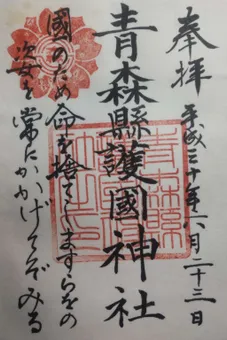 奉拝
平成三十年六月二十三日
青森縣護國神社
國のため命を捨てしますらをの
姿を常にかかげてぞみる